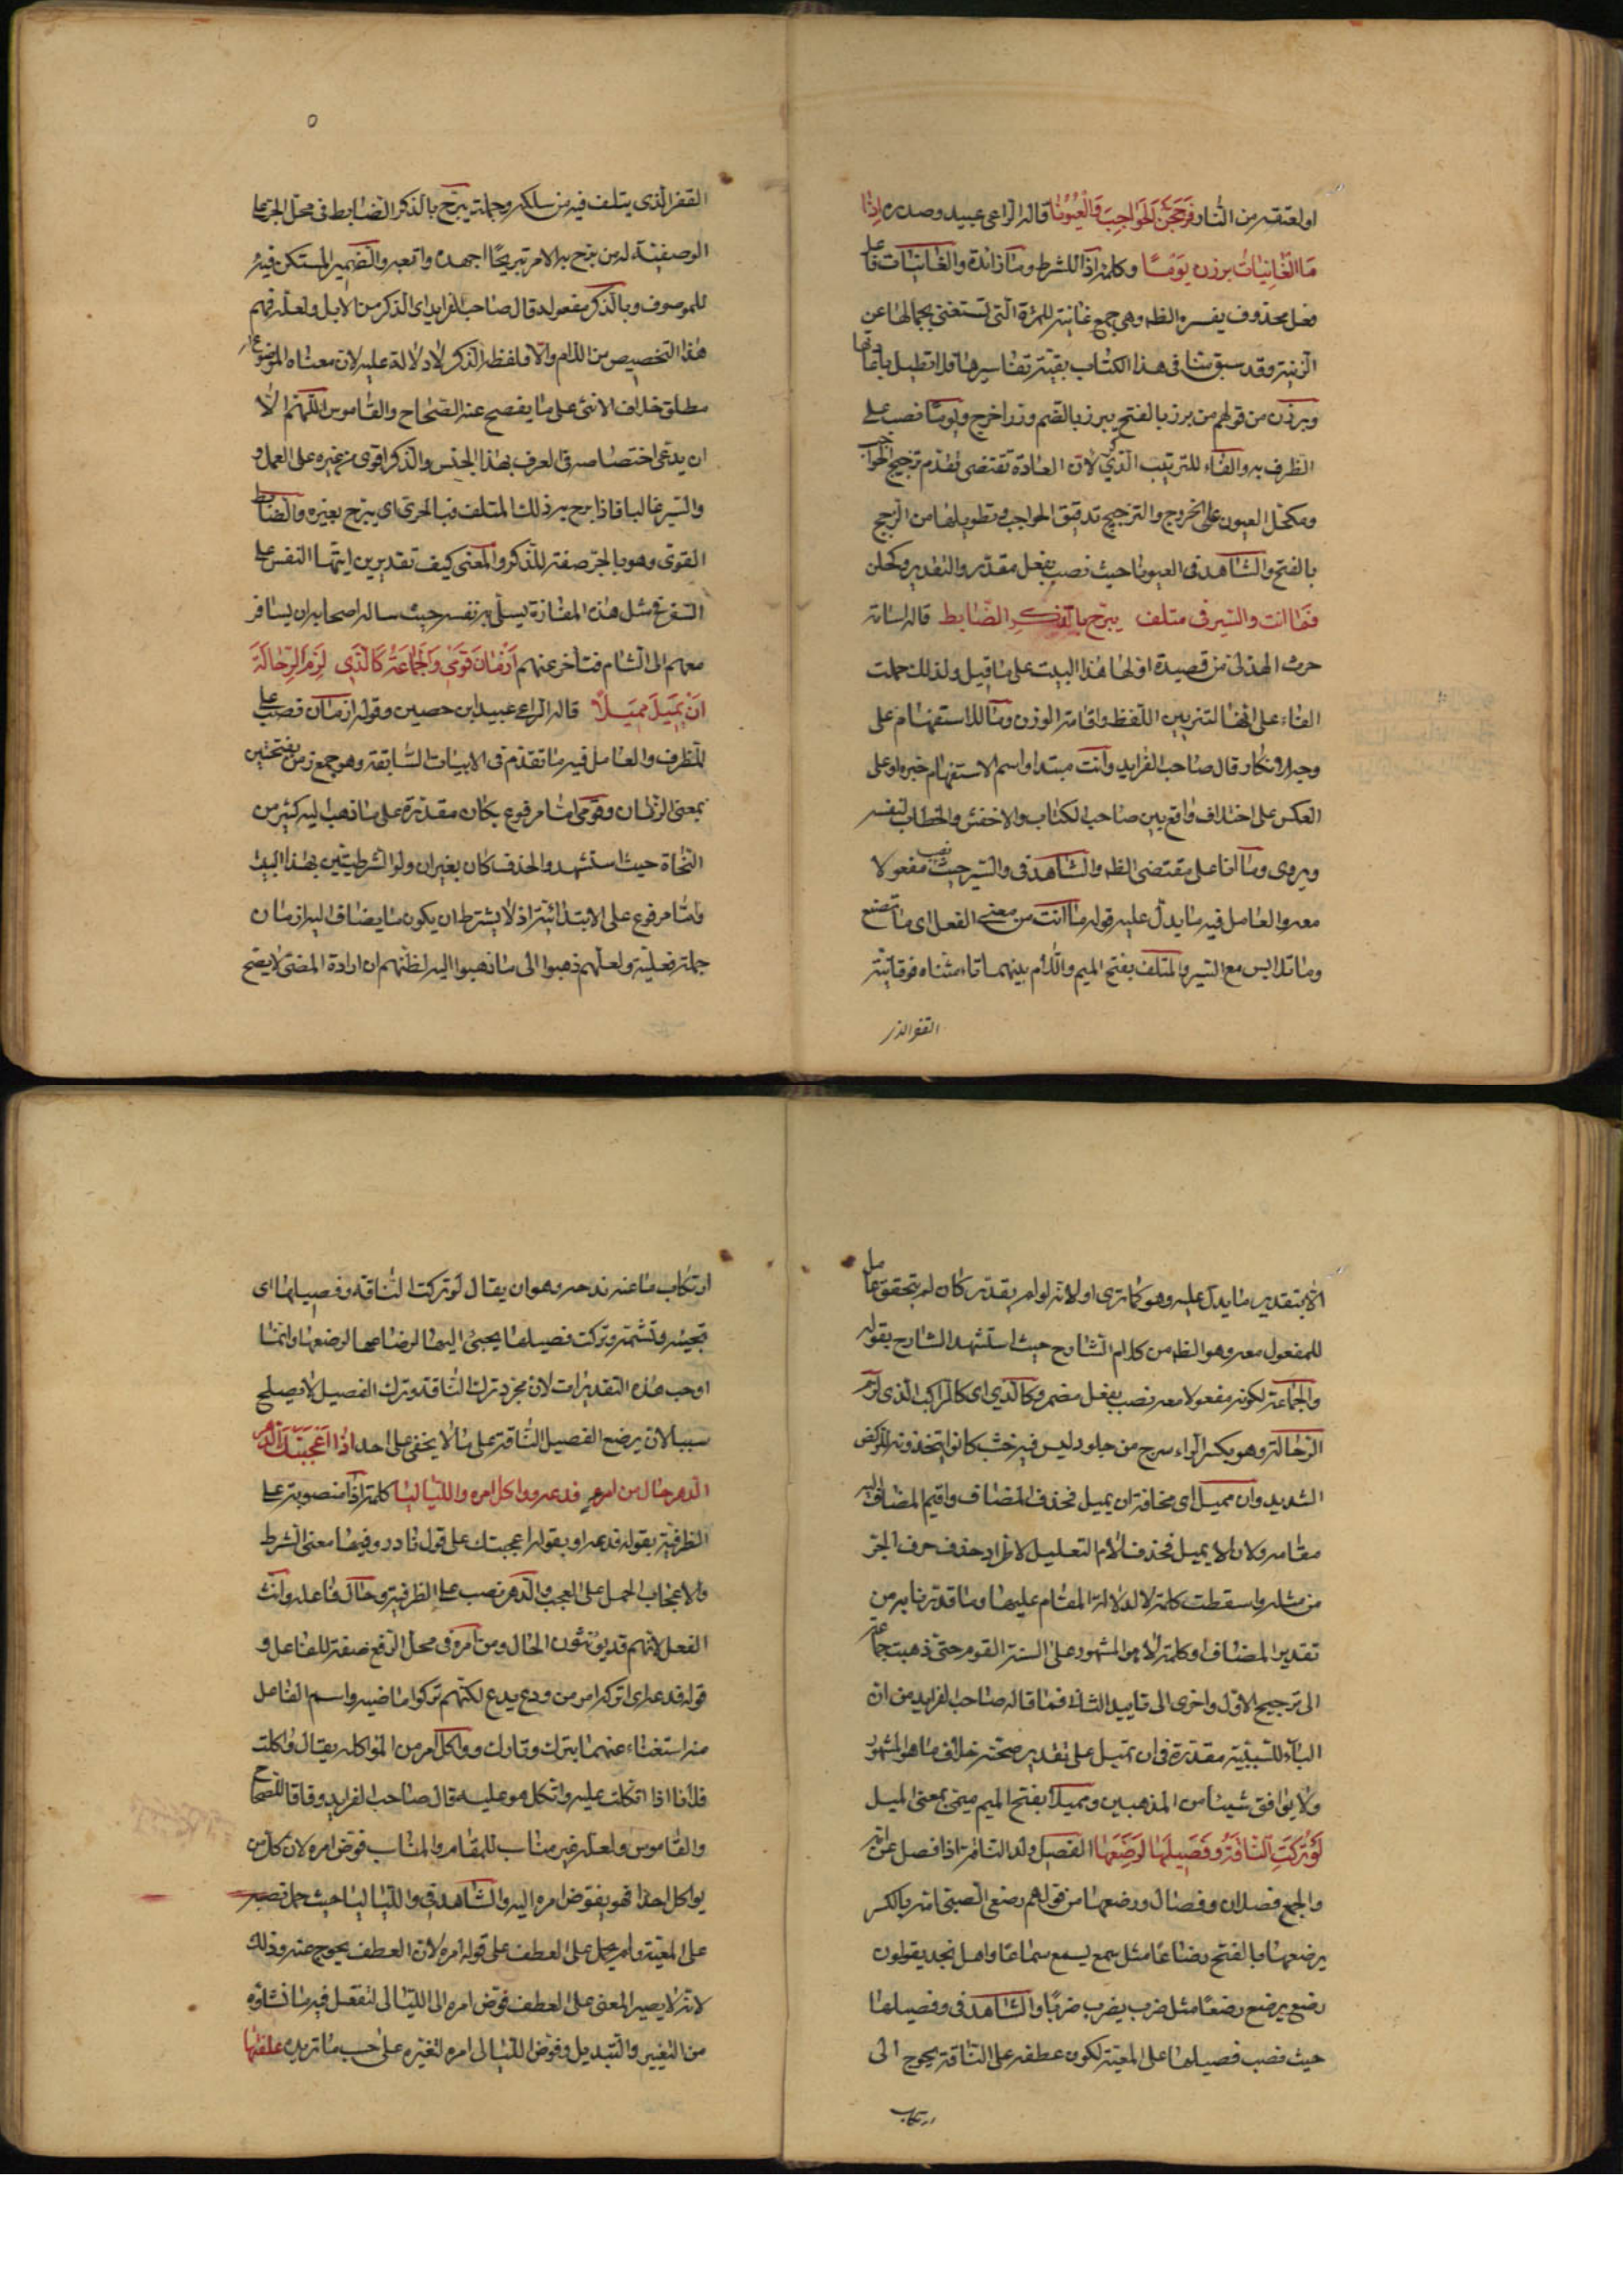 او لعتقه من النار فزججن الحواجب والعيونا قاله الراعى عبيد وصدره اذا
ما الغانيات برزن يوما وكلمة اذا للشرط وما زائدة والغانيات فاعل
فعل محذوف يفسره الظه وهى جمع غانية للمرءة التى تستغنى بجمالها عن
الزينة وقد سبق منا فى هذا الكتاب بقية تفاسيرها فلا تطيل باعادتها
وبرزن من قولهم من برز بالفتح يبرز بالضم وزرا خرج ويوما نصب على
الظرف به والفاء للترتيب الذكرى لان العادة تقتضى تقدم تزجيج الحواجب
ومكحل العيون على الخروج والتزجيج تدقيق الحواجب وتطويلها من الزجج
بالفتح والشاهد فى العيونا حيث نصب بفعل مقدر والتقدير وكحلن
فما انت والسير فى متلف يبرح بالذكر الضابط قاله اسامة
حرث الهذلى من قصيدة اولها هذا البيت على ما قيل ولذلك حملت
الفاء على انها لتزيين اللفظ واقامة الوزن وما للاستفهام على
وجه الانكار قال صاحب الفرايد وانت مبتدا واسم الاستفهام خبره او على
العكس على اختلاف واقع بين صاحب الكتاب والاخفش والخطاب لنفسه
ويروى وما انا على مقتضى الظه والشاهد فى والسير حيث نصب مفعولا
معه والعامل فيه ما يدل عليه قوله ما انت من معنى الفعل اى ما تصنع
وما تلابس مع السير والمتلف بفتح الميم واللام بينهما تاء مثناه فوقانية
القفر الذى
٥
القفر الذى يتلف فيه من سلكه وجملة يبرح بالذكر الضابط فى محل الجر على
الوصفية له من برح به الامر تبريحا اجهده واتعبه والضمير المستكن فيه
للموصوف وبالذكر مفعوله قال صاحب الفرايد اى الذكر من الابل ولعله فهم
هذا التخصيص من اللام والا فلفظه الذكر لا دلالة عليه لان معناه الموضوع له
مطلق خلاف الانثى على ما يفصح عنه الصحاح والقاموس اللهم الا
ان يدعى اختصاصه فى العرف بهذا الجنس والذكر اقوى من غيره على العمل و
والسير غالبا فاذا برح به ذلك المتلف فبالحرى اى يبرح بغيره والضابط
القوى وهو بالجر صفة للذكر والمعنى كيف تقديرين ايتها النفس على
السفر فى مثل هذه المفازة يسلى به نفسه حيث ساله اصحابه ان يسافر
معهم الى الشام فتاخر عنهم ازمان قومى والجماعة كالذى لزم الرحالة
ان يميل مميلا قاله الراعى عبيد ابن حصين وقوله ازمان نصب على
الظرف والعامل فيه ما تقدم فى الابيات السابقة وهو جمع زمن بفتحتين
بمعنى الزمان وقومى اما مرفوع بكان مقدرة على ما ذهب اليه كثير من
النحاة حيث استشهدوا لحذف كان بغير ان ولو الشرطيتين بهذا البيت
واما مرفوع على الابتدائية اذ لا يشترط ان يكون ما يضاف اليه ازمان
جملة فعلية ولعلهم ذهبوا الى ما ذهبوا اليه لظنهم ان ارادة المضى لا يصح
الا بتقدير ما يدل عليه وهو كما ترى او لانه لو لم يقدر كان لم يتحقق عامل
للمفعول معه وهو الظه من كلام الشارح حيث استشهد الشارح بقوله
والجماعة لكونه مفعولا معه نصب بفعل مضمر وكالذى اى كالراكب الذى لزم
الرحالة وهو بكسر الراء سرج من جلود ليس فيه خشب كانوا يتخذونه للركض
الشديد وان مميلا اى مخافة ان يميل فحذف المضاف واقيم المضاف اليه
مقامه ولان لا يميل فحذف لام التعليل لاطراد حذف حرف الجر
من مثله واسقطت كلمة لا لدلالة المقام عليها وما قدرنا به من
تقدير المضاف او كلمة لا هو المشهور على السنة القوم حتى ذهبت جماعة
الى ترجيح الاول واخرى الى تاييد الثانى فما قاله صاحب الفرايد من ان
الباء للسببية مقدرة فى ان تميل على تقدير صحته خلاف ما هو المشهور
ولا يوافق شيئا من المذهبين ومميلا بفتح الميم ميمى بمعنى الميل
لو تركت الناقة وفصيلها لرضعها الفصيل ولد الناقة اذا فصل عن امه
والجمع فصلان وفصال ورضعها من قولهم رضع الصبى امه بالكسر
يرضعها بالفتح رضاعا مثل سمع يسمع سماعا واهل نجد يقولون
رضع يرضع رضعا مثل ضرب يضرب ضربا والشاهد فى وفصيلها
حيث نصب فصيلها على المعية لكون عطفه على الناقة يحوج الى
ارتكاب
ارتكاب ما عنه ندحه وهو ان يقال لو تركت الناقة وفصيلها اى
تجيئه وتشمه وتركت فصيلها يجيئ اليها لرضاعها لرضعها وانما
اوجب هذه التقديرات لان مجرد ترك الناقة وترك الفصيل لا يصلح
سببا لان يرضع الفصيل الناقة على ما لا يخفى على احد اذا اعجبتك الدهر
الدهر حال من امرء فدعه وواكل امره واللياليا كلمة اذا منصوبة على
الظرفية بقوله فدعه او بقوله اعجبتك على قول نادر وفيها معنى الشرط
والاعجاب الحمل على العجب والدهر نصب على الظرفية وحال فاعله وانث
الفعل لانهم قد يؤنثون الحال ومن امرء فى محل الرفع صفة للفاعل و
قوله فدعه اى اتركه امر من ودع يدع لكنهم تركوا ماضيه واسم الفاعل
منه استغناء عنهما بترك وتارك وواكل امر من المواكله يقال واكلت
فلانا اذا اتكلت عليه واتكل هو عليه قال صاحب الفرايد وفاقا للصحاح
والقاموس ولعله غير مناسب للمقام والمناسب فوض امره لان كل من
يواكل احدا فهو يفوض امره اليه والشاهد فى واللياليا حيث حمل نصبه
على المعية ولم يحمل على العطف على قوله امره لان العطف يحوج عنه وذلك
لانه لا يصير المعنى على العطف فوض امره الى الليالى لتفعل فيه ما تشاؤه
من التغيير والتبديل وفوض الليالى امره لتغيره على حسب ما تريده علفتها